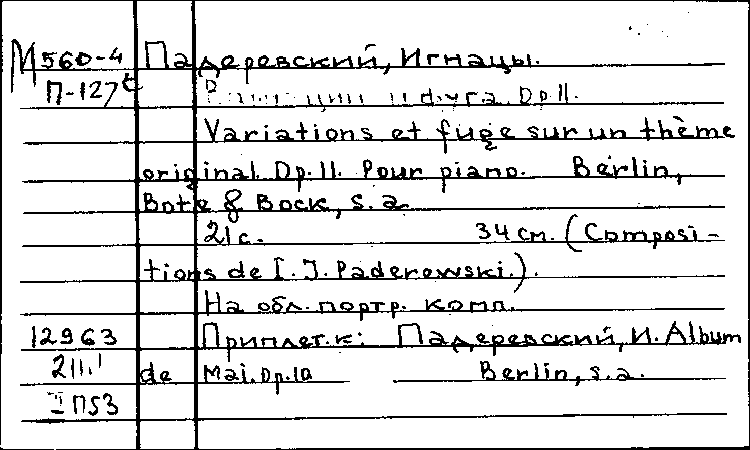 М560-4 Падеревский, Игнацы.
П-127с и фуга. Op.11.
Variations et fuge sur un thème
original. Op.11. Pour piano. Berlin,
Bote & Bock, s.a.
21с. 34 см. (Composi-
tions de I. J. Paderewski.).
На обл. портр. комп.
12963 Приплет.к: Падеревский, И. Album
211.1 de Mai. Op.10 Berlin, s.a.
I П53